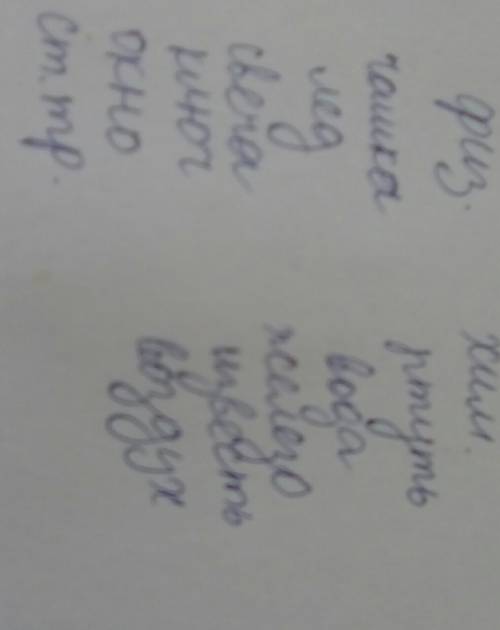 физ.
чашка
лед
свеча
ключ
окно
ст.тр.
хим.
ртуть
вода
железо
известь
воздух